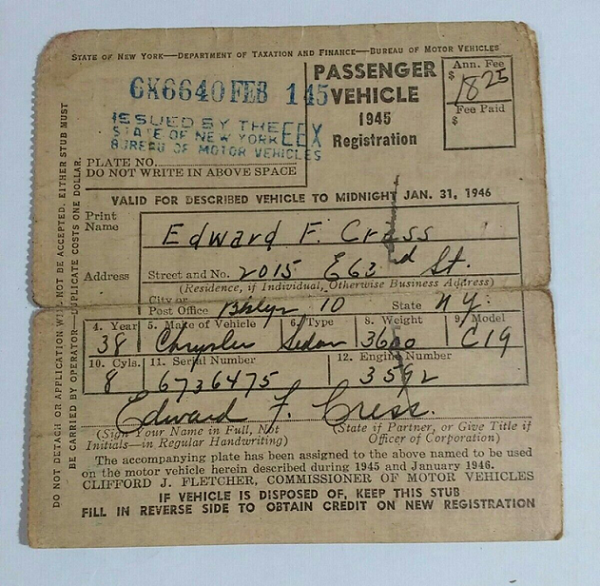 STATE OF NEW YORK—DEPARTMENT OF TAXATION AND FINANCE—BUREAU OF MOTOR VEHICLES
GK6640 FEB 1 45
ISSUED BY THE EEX
STATE OF NEW YORK
BUREAU OF MOTOR VEHICLES
PLATE NO.
DO NOT WRITE IN ABOVE SPACE
PASSENGER
VEHICLE
1945
Registration
Ann. Fee
$ 1825
Fee Paid
$
VALID FOR DESCRIBED VEHICLE TO MIDNIGHT JAN. 31, 1946
Print Name Edward F. Cress
Address Street and No. 2015 E 63rd St.
(Residence, if Individual, Otherwise Business Address)
City or Post Office Bklyn 10 State N.Y.
4. Year 5. Make of Vehicle 6. Type 8. Weight 9. Model
38 Chrysler Sedan 3600 C19
10. Cyls. 11. Serial Number 12. Engine Number
8 6736475 3592
Edward F. Cress.
(Sign Your Name in Full, Not Initials—in Regular Handwriting)
(State if Partner, or Give Title if Officer of Corporation)
The accompanying plate has been assigned to the above named to be used
on the motor vehicle herein described during 1945 and January 1946.
CLIFFORD J. FLETCHER, COMMISSIONER OF MOTOR VEHICLES
IF VEHICLE IS DISPOSED OF, KEEP THIS STUB
FILL IN REVERSE SIDE TO OBTAIN CREDIT ON NEW REGISTRATION
DO NOT DETACH OR APPLICATION WILL NOT BE ACCEPTED. EITHER STUB MUST
BE CARRIED BY OPERATOR—DUPLICATE COSTS ONE DOLLAR.